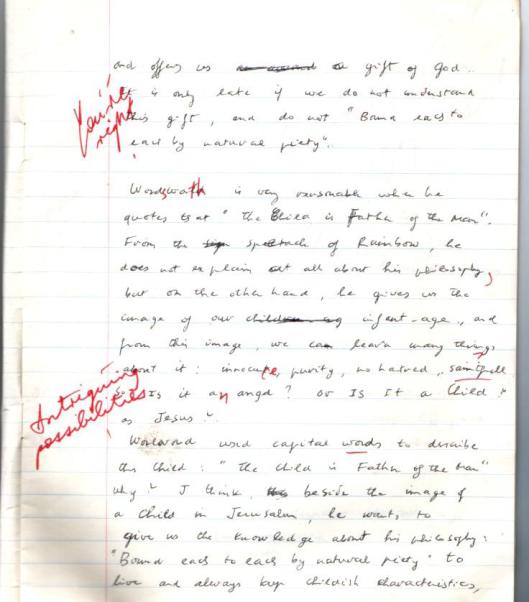 and offers us a gift of God.
It is only late if we do not understand
this gift, and do not "Bound each to
each by natural piety".
You're
right!
Wordsworth is very reasonable when he
quotes that "the Child is Father of the Man".
From the spectacle of Rainbow, he
does not explain at all about his philosophy,
but on the other hand, he gives us the
image of our infant-age, and
from this image, we can learn many things
about it: innocence, purity, no hatred,
Is it an angel? or Is It a Child
as Jesus?
Intriguing
possibilities
used capital words to describe
this Child: "The Child is Father of the Man"
why? I think, beside the image of
a Child in Jerusalem, he wants to
give us the knowledge about his philosophy:
"Bound each to each by natural piety" to
live and always keep childish characteristics,